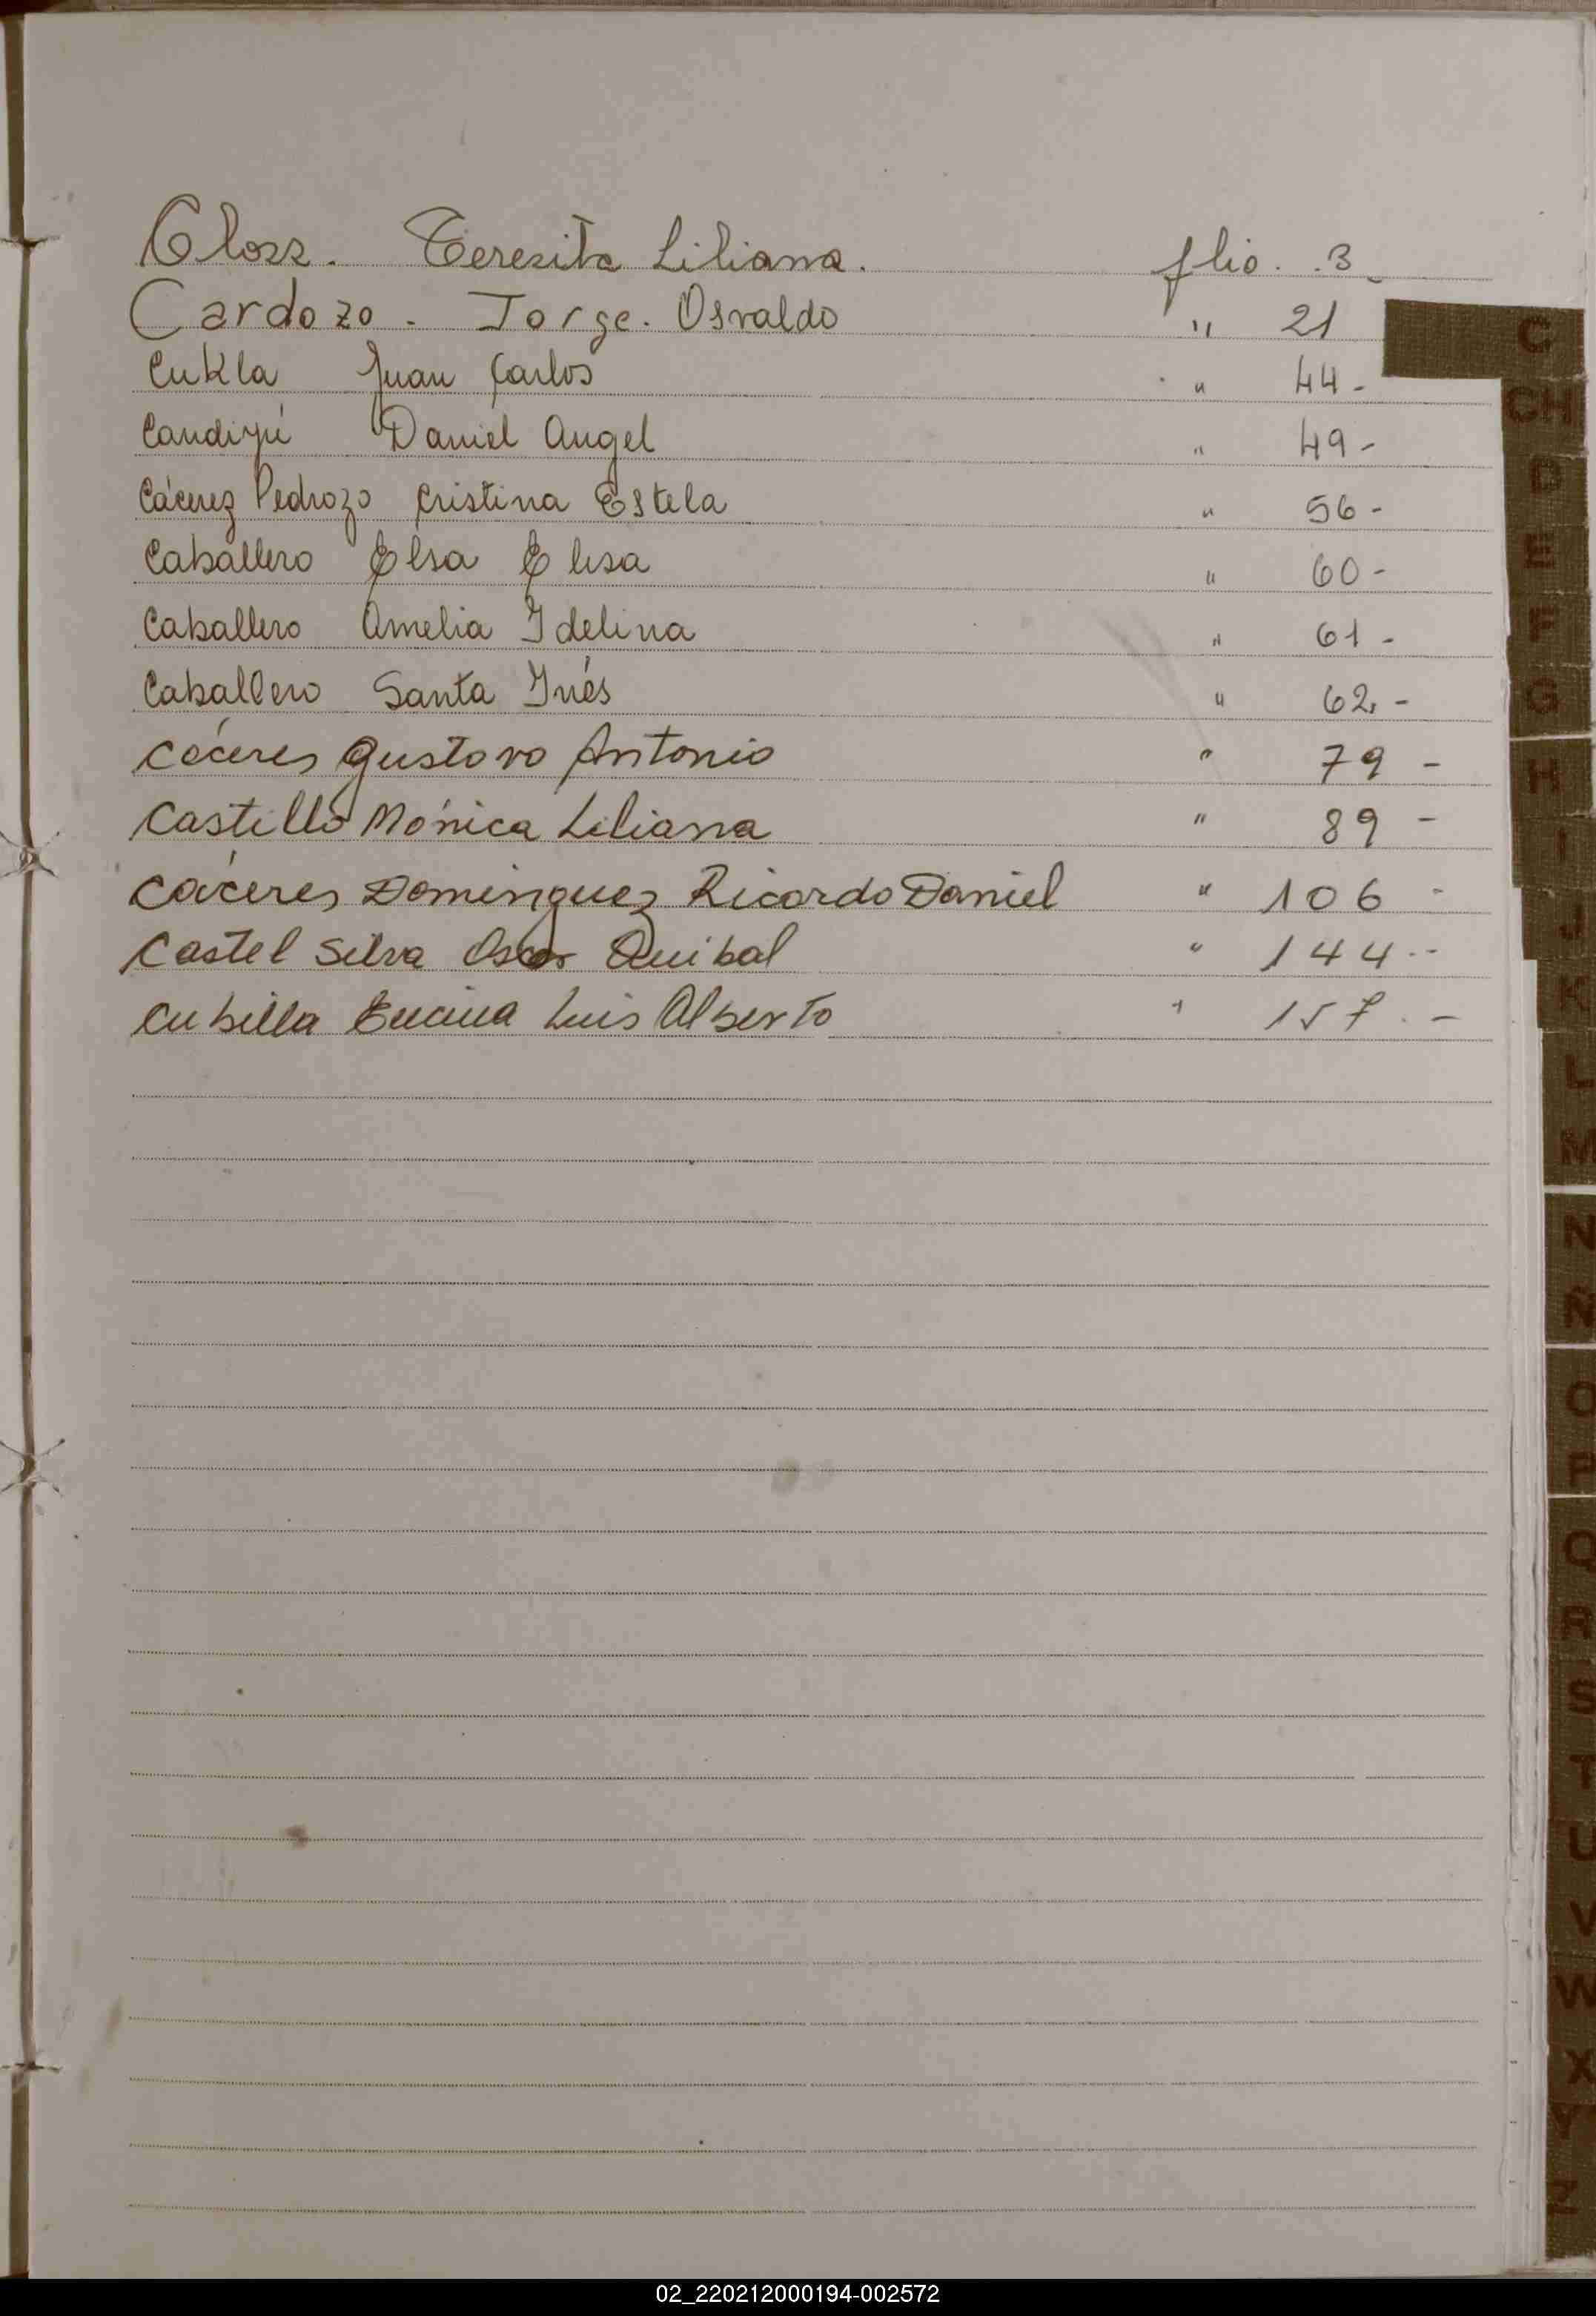 Closs. Teresita Liliana. flio. 3
Cardozo. Jorge. Osvaldo " 21
Cukla Juan Carlos " 44-
Candiyú Daniel Angel " 49-
Cácerez Pedrozo Cristina Estela " 56-
Caballero Elsa Elisa " 60-
Caballero Amelia Idelina " 61-
Caballero Santa Inés " 62,-
Cáceres Gustavo Antonio " 79-
Castillo Mónica Liliana " 89-
Cáceres Dominguez Ricardo Daniel " 106-
Castel Silva Oscar Anibal " 144--
Cubilla Encina Luis Alberto " 157.-
C
CH
D
E
F
G
H
I
J
K
L
M
N
Ñ
O
P
Q
R
S
T
U
V
W
X
Y
Z
02_220212000194-002572